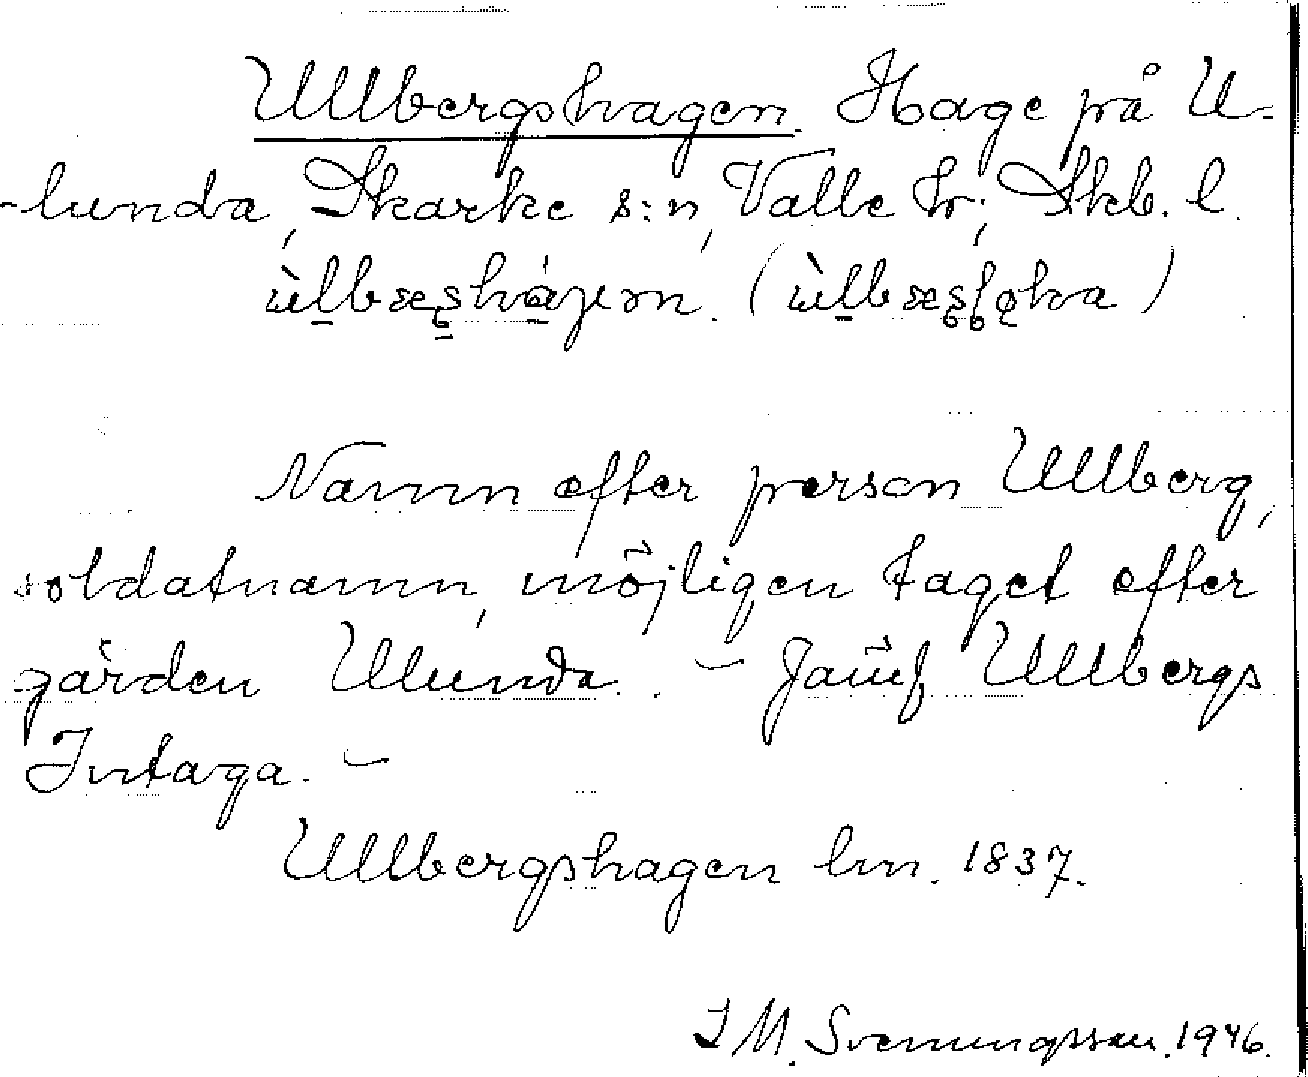 Ullbergshagen. Hage på U-
-lunda, Skarke s:n, Valle hr; Skb. l.
Namn efter person Ullberg,
soldatnamn, möjligen taget efter
gården Ulunda. – Jämf Ullbergs
Intaga. –
Ullbergshagen lm. 1837.
I M. Svenungsson. 1946.